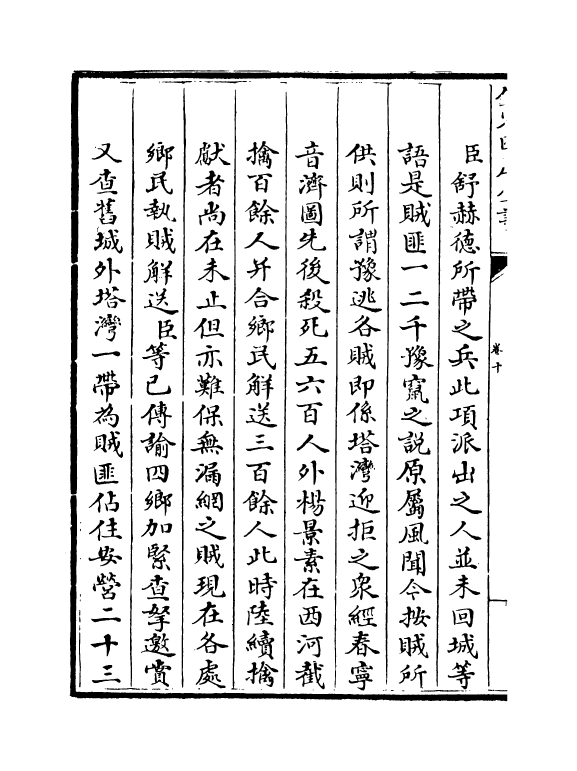 臣舒赫德所帶之兵此項派出之人並未回城等
語是賊匪一二千豫竄之説原屬風聞今按賊所
供則所謂豫逃各賊即係塔灣迎拒之衆經春寧
音濟圖先後殺死五六百人外楊景素在西河截
擒百餘人并合鄉民解送三百餘人此時陸續擒
獻者尚在未止但亦難保無漏網之賊現在各處
鄉民執賊解送臣等已傳諭四鄉加緊查拏邀賞
又查舊城外塔灣一帶為賊匪佔住安營二十三
卷十